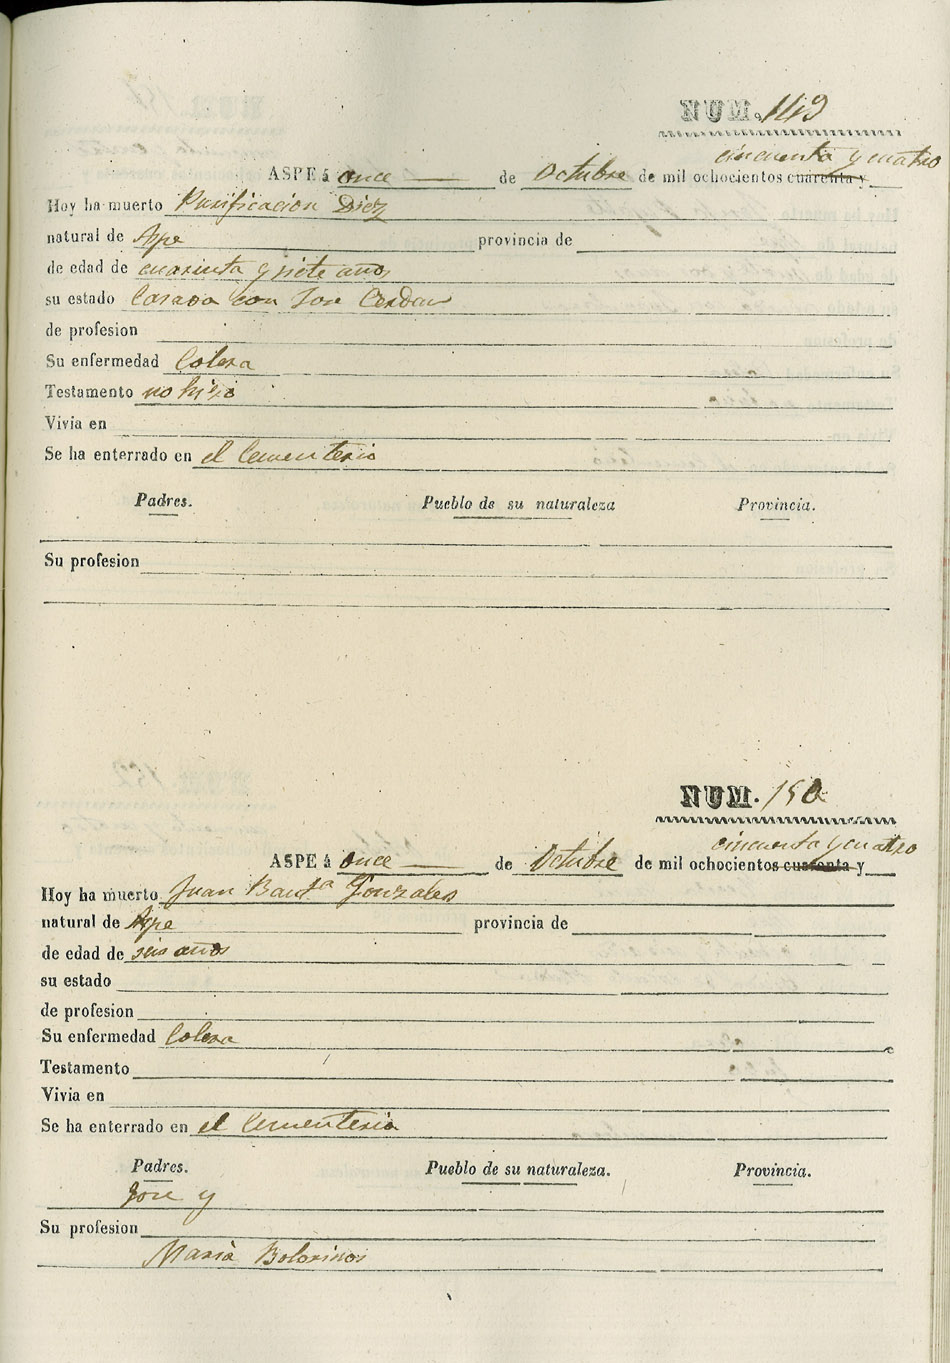 NUM. 149
cincuenta y cuatro
ASPE á once de Octubre de mil ochocientos cuarenta y
Hoy ha muerto Purificacion Diez
natural de Aspe provincia de
de edad de cuarenta y siete años
su estado Casada con Jose Cerdan
de profesion
Su enfermedad Colera
Testamento no hizo
Vivia en
Se ha enterrado en el Cementerio
Padres. Pueblo de su naturaleza Provincia.
Su profesion
NUM. 150
cincuenta y cuatro
ASPE á once de Octubre de mil ochocientos cuarenta y
Hoy ha muerto Juan Baut.ª Gonzales
natural de Aspe provincia de
de edad de seis años
su estado
de profesion
Su enfermedad Colera
Testamento
Vivia en
Se ha enterrado en el Cementerio
Padres. Pueblo de su naturaleza. Provincia.
Jose y
Su profesion
Maria Bolorinos